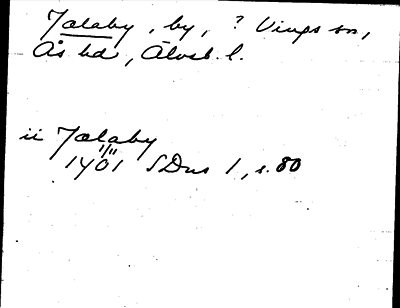 Jalaby, by, ? Vings sn,
Ås hd, Älvsb. l.
ii Jalaby
1401 SDns 1, s. 80